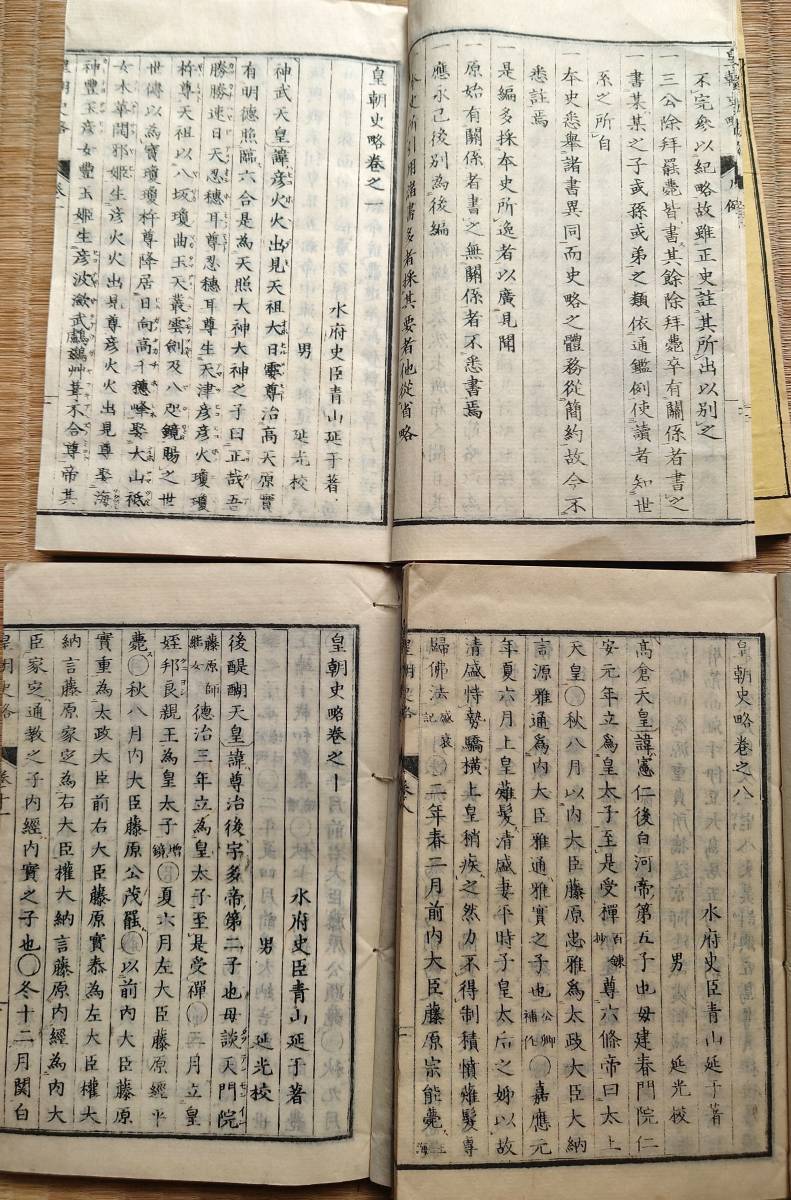 不完參以紀略故雖正史註其所出以別之
一三公除拜罷薨皆書其餘除拜薨卒有關係者書之
書某某之子或孫或弟之類依通鑑例使讀者知世
系之所自
一本史悉舉諸書異同而史略之體務從簡約故今不
悉註焉
一是編多採本史所逸者以廣見聞
一原始有關係者書之無關係者不悉書焉
一應永已後別為後編
本史所引用諸書多者採其要者他從省略
皇朝史略卷之一
水府史臣青山延于著
男 延光校
神武天皇諱彦火火出見天祖大日孁尊治高天原實
有明德照臨六合是為天照大神大神之子曰正哉吾
勝勝速日天忍穗耳尊忍穗耳尊生天津彦彦火瓊瓊
杵尊天祖以八坂瓊曲玉天叢雲劍及八咫鏡賜之世
世傳以為寶瓊瓊杵尊降居日向高千穗峰娶大山祇
女木華開邪姬生彦火火出見尊彦火火出見尊娶海
神豐玉彦女豐玉姬生彦波瀲武鸕鷀艸葺不合尊帝其
皇朝史略
皇朝史略卷之八
水府史臣青山延于著
男 延光校
高倉天皇諱憲仁後白河帝第五子也母建春門院仁
安元年立爲皇太子至是受禪百鍊抄尊六條帝曰太上
天皇○秋八月以內大臣藤原忠雅爲太政大臣大納
言源雅通爲內大臣雅通雅實之子也公卿補任○嘉應元
年夏六月上皇薙髮清盛妻平時子皇太后之姊以故
清盛恃勢驕橫上皇稍疾之然力不得制積憤薙髮專
歸佛法盛衰記○二年春二月前內大臣藤原宗能薨
皇朝史略 卷八
皇朝史略卷之十
水府史臣青山延于著
男 延光校
後醍醐天皇諱尊治後宇多帝第二子也母談天門院
藤原師繼女德治三年立為皇太子至是受禪○三月立皇
姪邦良親王為皇太子增鏡○夏六月左大臣藤原經平
薨○秋八月內大臣藤原公茂罷○以前內大臣藤原
實重為太政大臣前右大臣藤原實泰為左大臣權大
納言藤原家定為右大臣權大納言藤原內經為內大
臣家定通教之子內經內實之子也○冬十二月関白
皇朝史略 卷十